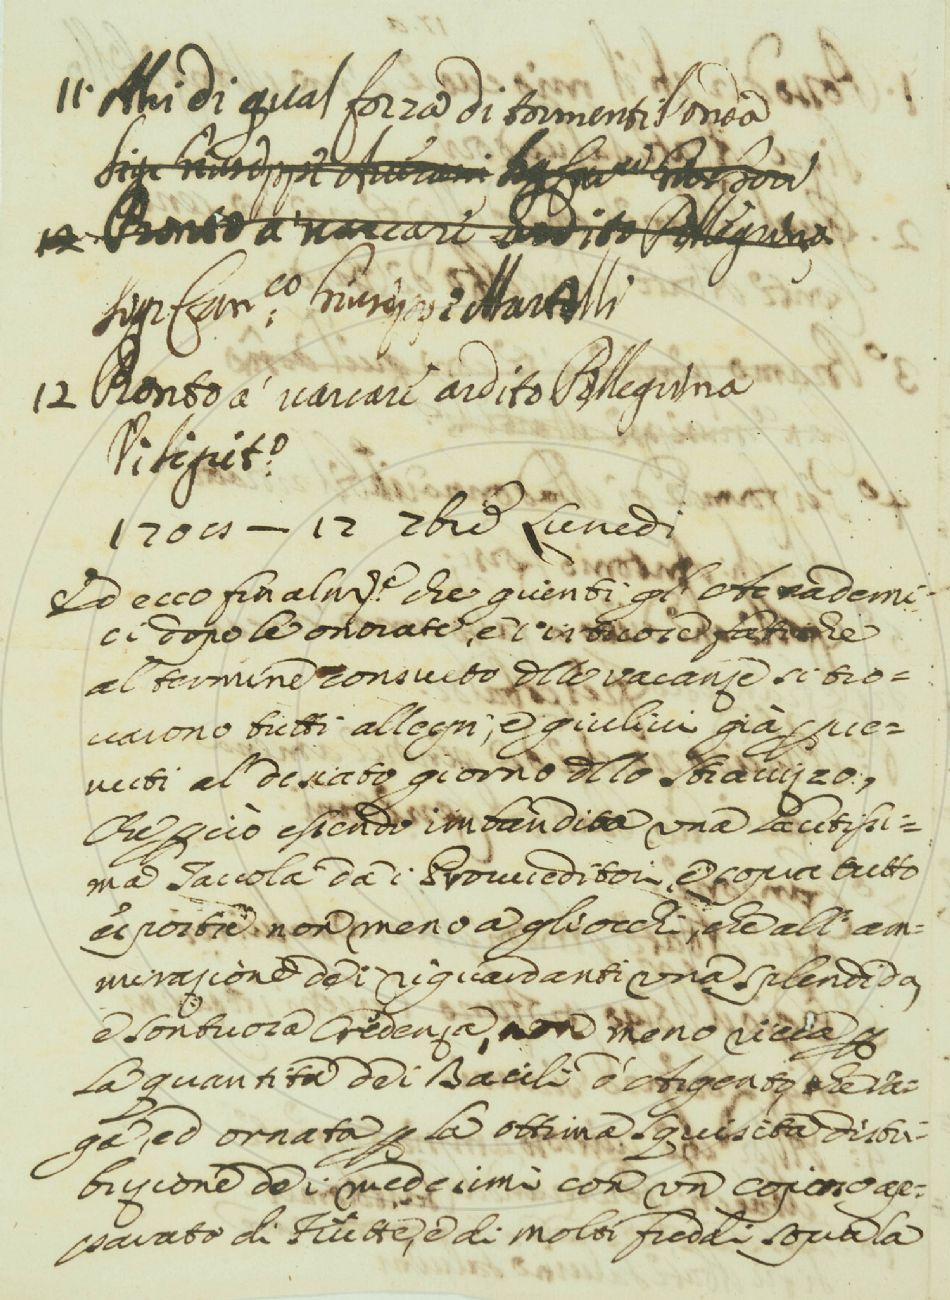 11. Ahi di qual forza di tormenti l'onda
Sigr Giuseppe
12 Pronto a' varcare ardito Pellegrino
Sigr Can.co Giuseppe Martelli
12 Pronto a' varcare ardito Pellegrino
170cs — 12 7bre Lunedi
Ed ecco finalm.te che giunti gl' Accademi-
ci dopo le onorate, e virtuose fatiche
al termine consueto dlle vacanze si tro=
varono tutti allegri, e giulivi già p̱ve=
nuti al' desiato giorno dllo Stravizzo,
che p̱ciò essendo imbandita una Lautissi=
ma Tavola da i Proveditori, e sopra tutto
espostre non meno a gli occhi, che all' am=
mirazione dei riguardanti una splendida,
e sontuosa Credenza, non meno ricca p̱
la quantità dei Bacili d'Argento, che va=
ga, ed ornata p̱ la ottima, squisita distri=
buzione dei medesimi con un copioso ap=
parato di Frutte, e di molti freddi sopra la